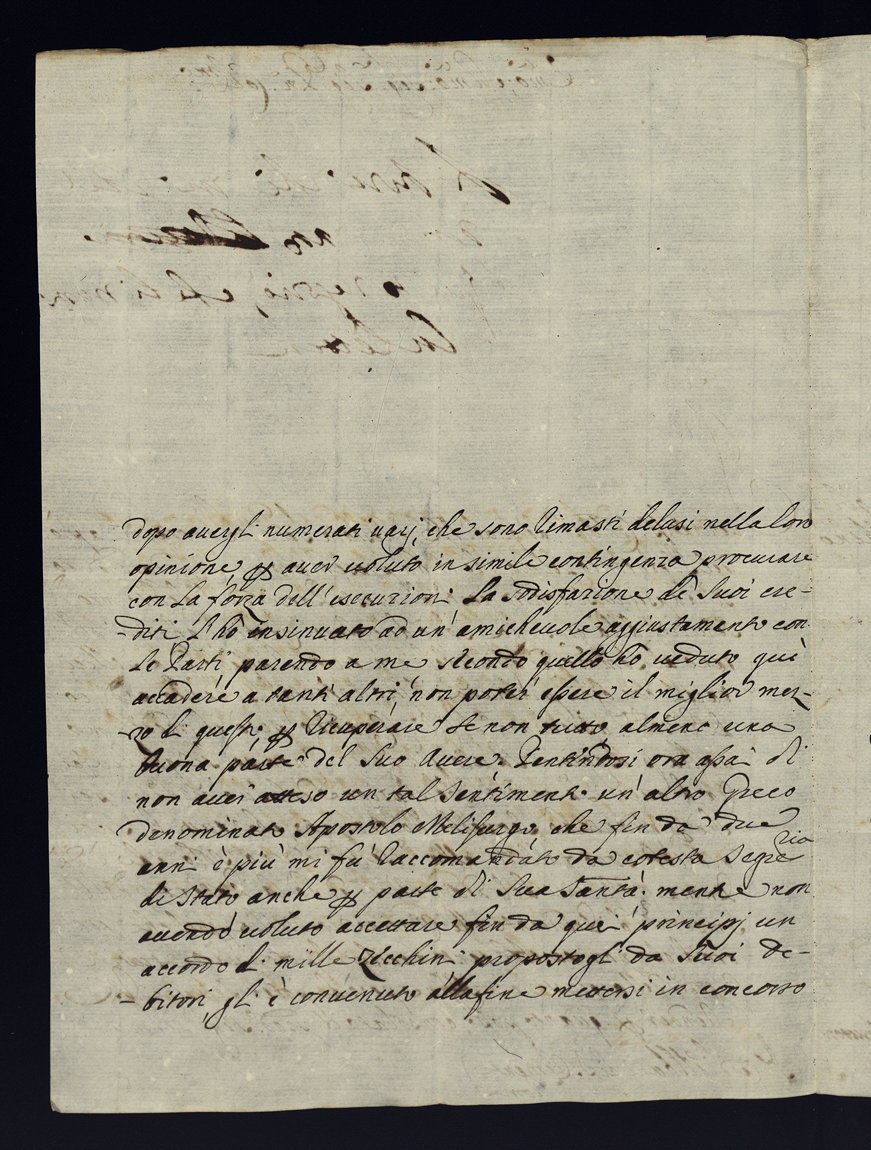 dopo avergli numerati varj, che sono rimasti delusi nella loro
opinione, ꝑ aver voluto in simile contingenza procurare
con la forza dell'esecuzioni la sodisfazione de Suoi cre-
-diti l'hò insinuato ad un'amichevole aggiustamento con
le Parti parendo a me secondo quello hò veduto quì
accadere a tanti altri, non poter essere il miglior mez-
-zo di questo ꝑ ricuperare se non tutto almeno una
buona parte del Suo Avere. Pentendosi ora assai di
non aver atteso un tal Sentimento un'altro Greco
denominato Apostolo Melisurgo, che fin da due
anni è più mi fù raccomandato da cotesta Segre^ria
di Stato anche ꝑ parte di Sua Santà: mentre non
avendo voluto accettare fin da quei principj un
accordo di mille Zecchini propostogli da Suoi de-
-bitori, gli è convenuto alla fine mettersi in concorso